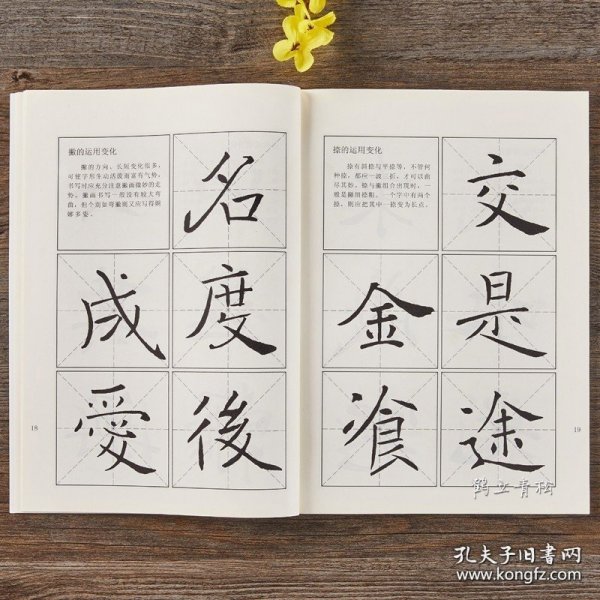 撇的运用变化
撇的方向、长短变化很多，
可使字形生动活泼而富有气势。
书写时应充分注意撇画微妙的走
势。撇画书写一般没有较大弯
曲，但个别如弯撇则又应写得婀
娜多姿。
名
度
後
成
愛
18
捺的运用变化
捺有斜捺与平捺等，不管何
种捺，都应一波三折，才可以曲
尽其妙。捺与撇组合出现时，一
般是撇细捺粗。一个字中有两个
捺，则应把其中一捺变为长点。
交
是
途
金
飡
19
鹤立青松
孔夫子旧书网
www.kongfz.com